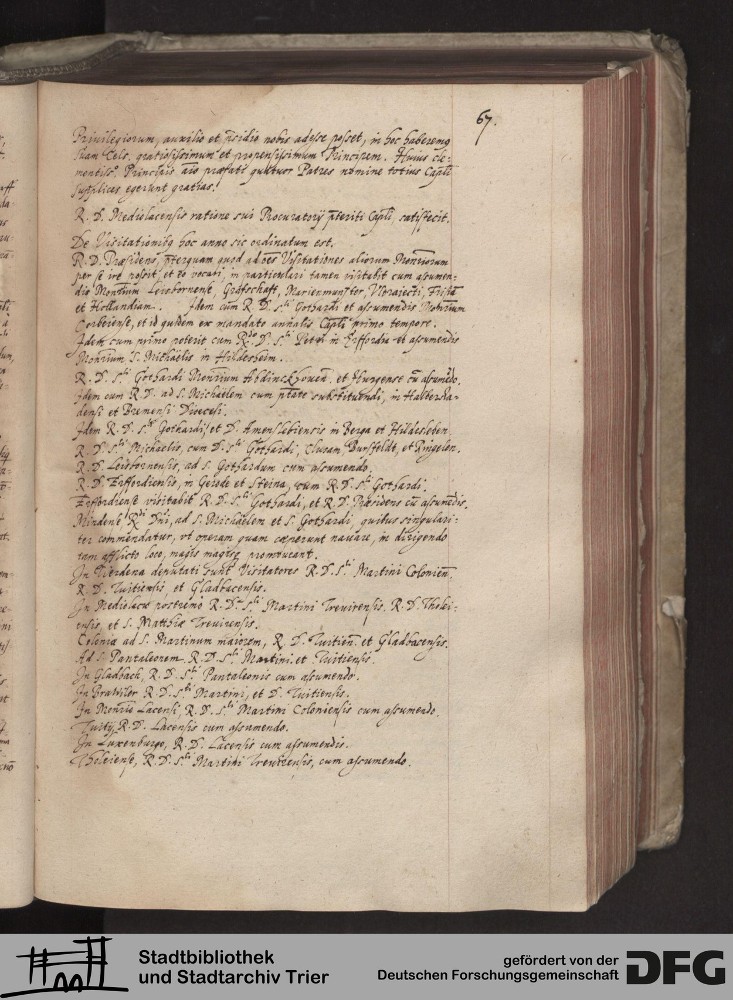 67.
Priuilegiorum, auxilio et p̄sidio nobis adesse posset, in hoc haberemus
suam Cels. gratiosissimum et propensissimum Principem. Huius cle-
mentiss. Principis aīo præfati quatuor Patres nomine totius Capli
supplices egerunt gratias.
R. D. Mediolacensis ratione sui Procuratorij p̄teriti Capli, satisfecit.
De Visitationibq hoc anno sic ordinatum est.
R. D. Præsidens, p̄terquam quod ad oēs Visitationes aliorum Monriorum
per se ire possit, et eo vocari, in particulari tamen visitabit cum assumen-
dis Monrium Leisbornense, Grafschafft, Marienmunster, Vloraiecti, Frisia
et Hollandiam. Idem cum R. D. Sti Gothardi et assumendis Monrium
Corbeiense, et id quidem ex mandato annalis Capli primo tempore.
Idem cum primo poterit cum R. D. Sti Petri in Erffordia et assumendis
Monrium S. Michaelis in Hildesheim.
R. D. Sti Gothardi Monrium Abdinckhouen. et Huysense cū assumēdo.
Idem cum R. D. ad S. Michaelem cum p̄tate substituendi, in Halberda-
densi et Bremensi Diœcesi.
Idem R. D. Sti Gothardi, et D. Amenslebiensis in Berga et Hildesleben.
R. D. Sti Michaelis, cum D. Sti Gothardi, Clusam, Bursfeldt, et Ringelen.
R. D. Leisbornensis, ad S. Gothardum cum assumendo.
R. D. Erffordiensis, in Gerode et Steina, cum R. D. Sti Gothardi.
Erffordiense visitabit R. D. Sti Gothardi, et R. D. Præsidens cū assumēdis.
Mindense Rdi Dni, ad S. Michaelem et S. Gothardi, quibus singulari-
ter commendatur, vt operam quam cœperunt nauare, in dirigendo
tam afflicto loco, magis magisq promoueant.
In Werdena deputati sunt Visitatores R. D. Sti Martini Colonien.
R. D. Tuitiensis et Gladbacensis.
In Mediolacu nostremo R. D. Sti Martini Treuirensis. R. D. Tholei-
ensis, et S. Matthiæ Treuirensis.
Coloniæ ad S. Martinum maiorem, R. D. Tuitien. et Gladbacensis.
Ad S. Pantaleonem R. D. Sti Martini et Tuitiensis.
In Gladbach, R. D. Sti Pantaleonis cum assumendo.
In Brawiler R. D. Sti Martini, et D. Tuitiensis.
In Monrio Lacensi, R. D. Sti Martini Coloniensis cum assumendo.
Tuitij R. D. Lacensis cum assumendo.
In Luxenburgo, R. D. Lacensis cum assumendis.
Tholeiense, R. D. Sti Martini Treuirensis, cum assumendo.
Stadtbibliothek
und Stadtarchiv Trier
gefördert von der
Deutschen Forschungsgemeinschaft
DFG